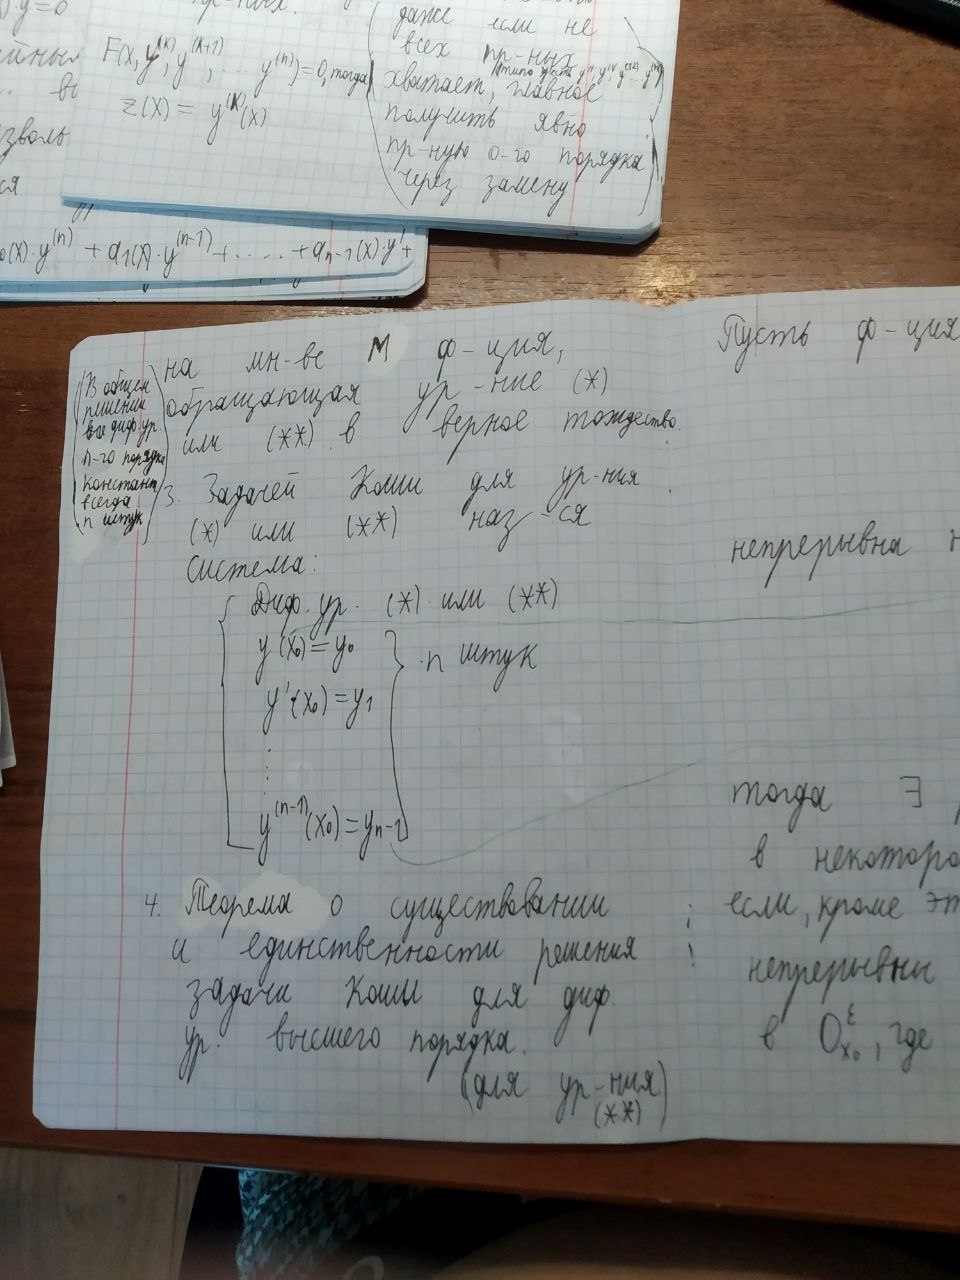 ) y = 0
ейных
F(x, y^(k), y^(k+1), ... y^(n)) = 0, тогда
z(x) = y^(k)(x)
даже если не
всех пр-ных
хватает, главное
получить явно
пр-ную 0-го порядка
через замену
ся
(x)·y^(n) + a1(x)·y^(n-1) + ..... + an-1(x)·y' +
(В общем
решении
диф. ур.
n-го порядка
констант
всегда
n штук)
на мн-ве M ф-ция,
обращающая ур-ние (*)
или (**) в верное тождество.
3. Задачей Коши для ур-ния
(*) или (**) наз-ся
система:
{ Диф. ур. (*) или (**)
y(x0) = y0
y'(x0) = y1
} n штук
⋮
y^(n-1)(x0) = yn-1
4. Теорема о существовании
и единственности решения
задачи Коши для диф.
ур. высшего порядка.
(для ур-ния
(**))
Пусть ф-ция
непрерывна н
тогда ∃
в некоторо
если, кроме эт
непрерывны
в O^ε_x0, где